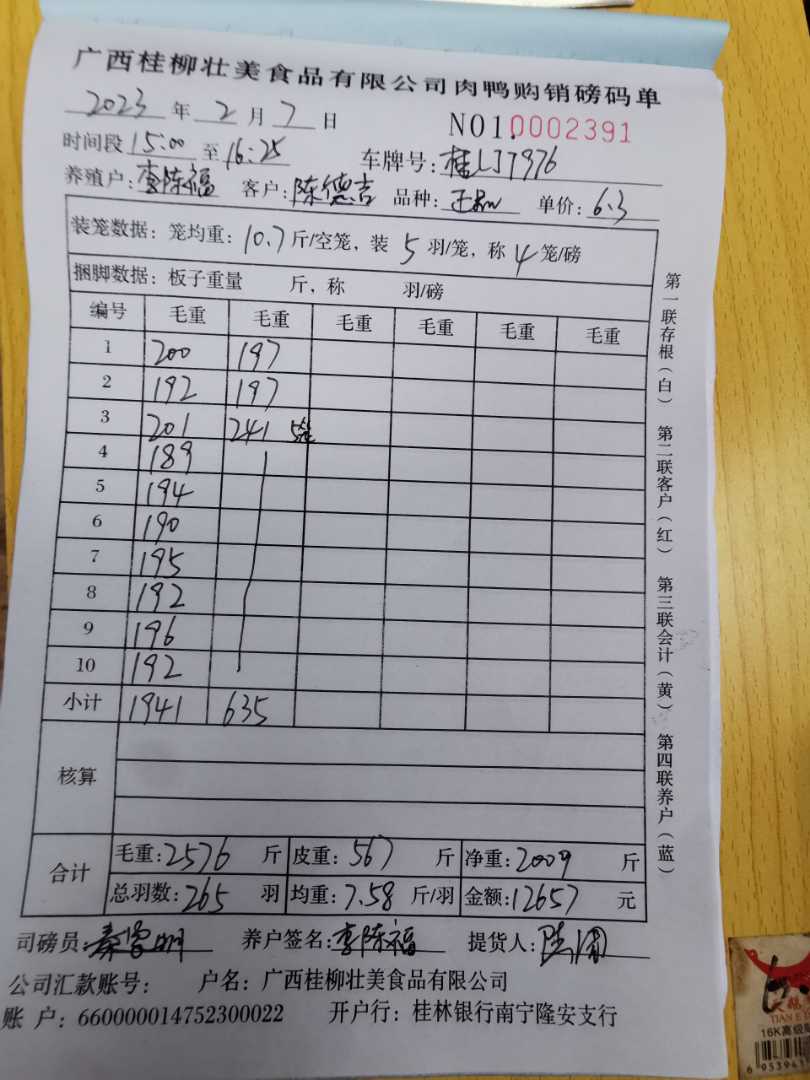 广西桂柳壮美食品有限公司肉鸭购销磅码单
2023 年 2 月 7 日 NO1.0002391
时间段 15:00 至 16:25 车牌号: 桂LJ7976
养殖户: 李陈福 客户: 陈德吉 品种: 单价: 6.3
装笼数据: 笼均重: 10.7 斤/空笼, 装 5 羽/笼, 称 4 笼/磅
捆脚数据: 板子重量 斤, 称 羽/磅
编号 毛重 毛重 毛重 毛重 毛重 毛重
1 200 197
2 192 197
3 201 241 5笼
4 189
5 194
6 190
7 195
8 192
9 196
10 192
小计 1941 635
核算
合计 毛重: 2576 斤 皮重: 567 斤 净重: 2009 斤
总羽数: 265 羽 均重: 7.58 斤/羽 金额: 12657 元
司磅员: 养户签名: 李陈福 提货人:
公司汇款账号: 户名: 广西桂柳壮美食品有限公司
账 户: 660000014752300022 开户行: 桂林银行南宁隆安支行
第一联存根(白) 第二联客户(红) 第三联会计(黄) 第四联养户(蓝)
16K高级
6 95394